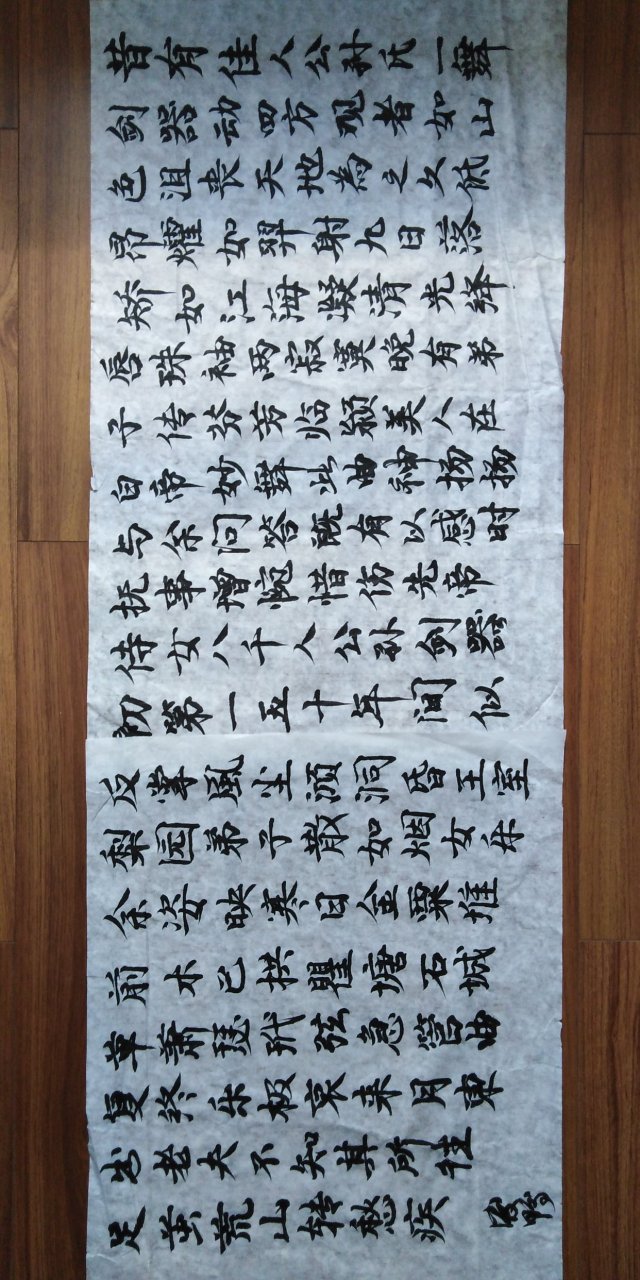 昔有佳人公孙氏一舞
剑器动四方观者如山
色沮丧天地為之久低
昂燿如羿射九日落
矫如江海凝清光绛
唇珠袖两寂寞晚有弟
子传芬芳临颍美人在
白帝妙舞此曲神扬扬
与余问答既有以感时
抚事增惋惜伤先帝
侍女八千人公孙剑器
初第一五十年间似
反掌風尘澒洞昏王室
梨园弟子散如烟女乐
余姿映寒日金粟推
前木已拱瞿塘石城
草萧瑟玳弦急管曲
复终乐极哀来月東
出老夫不知其所往
足茧荒山转愁疾